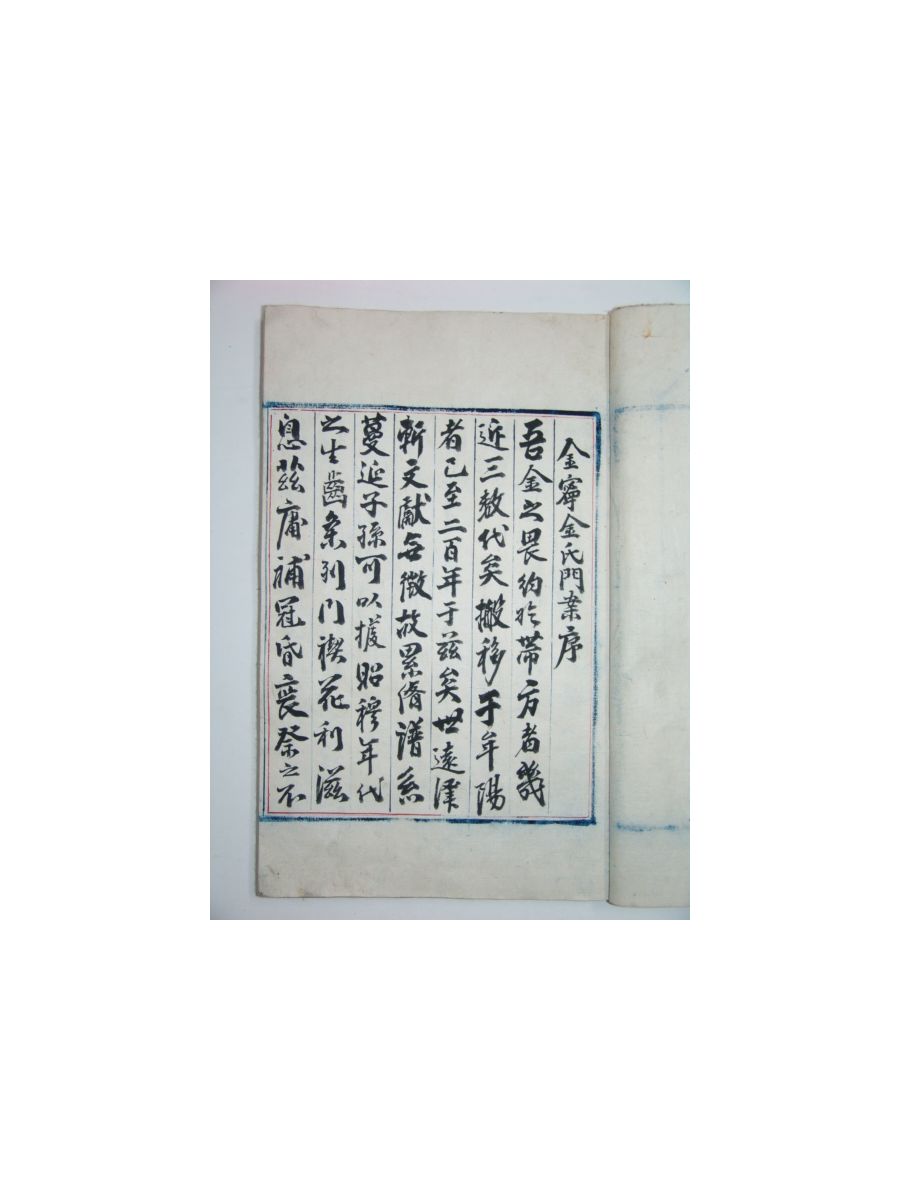 金寧金氏門案序
吾金之畏約於帶方者幾
近三数代矣搬移于年陽
者已至二百年于茲矣世遠澤
斬文献無徵故累脩譜系
蔓延子孫可以擭昭穆年代
之生齒条列門禊花利滋
息茲庸補冠昏喪祭之不